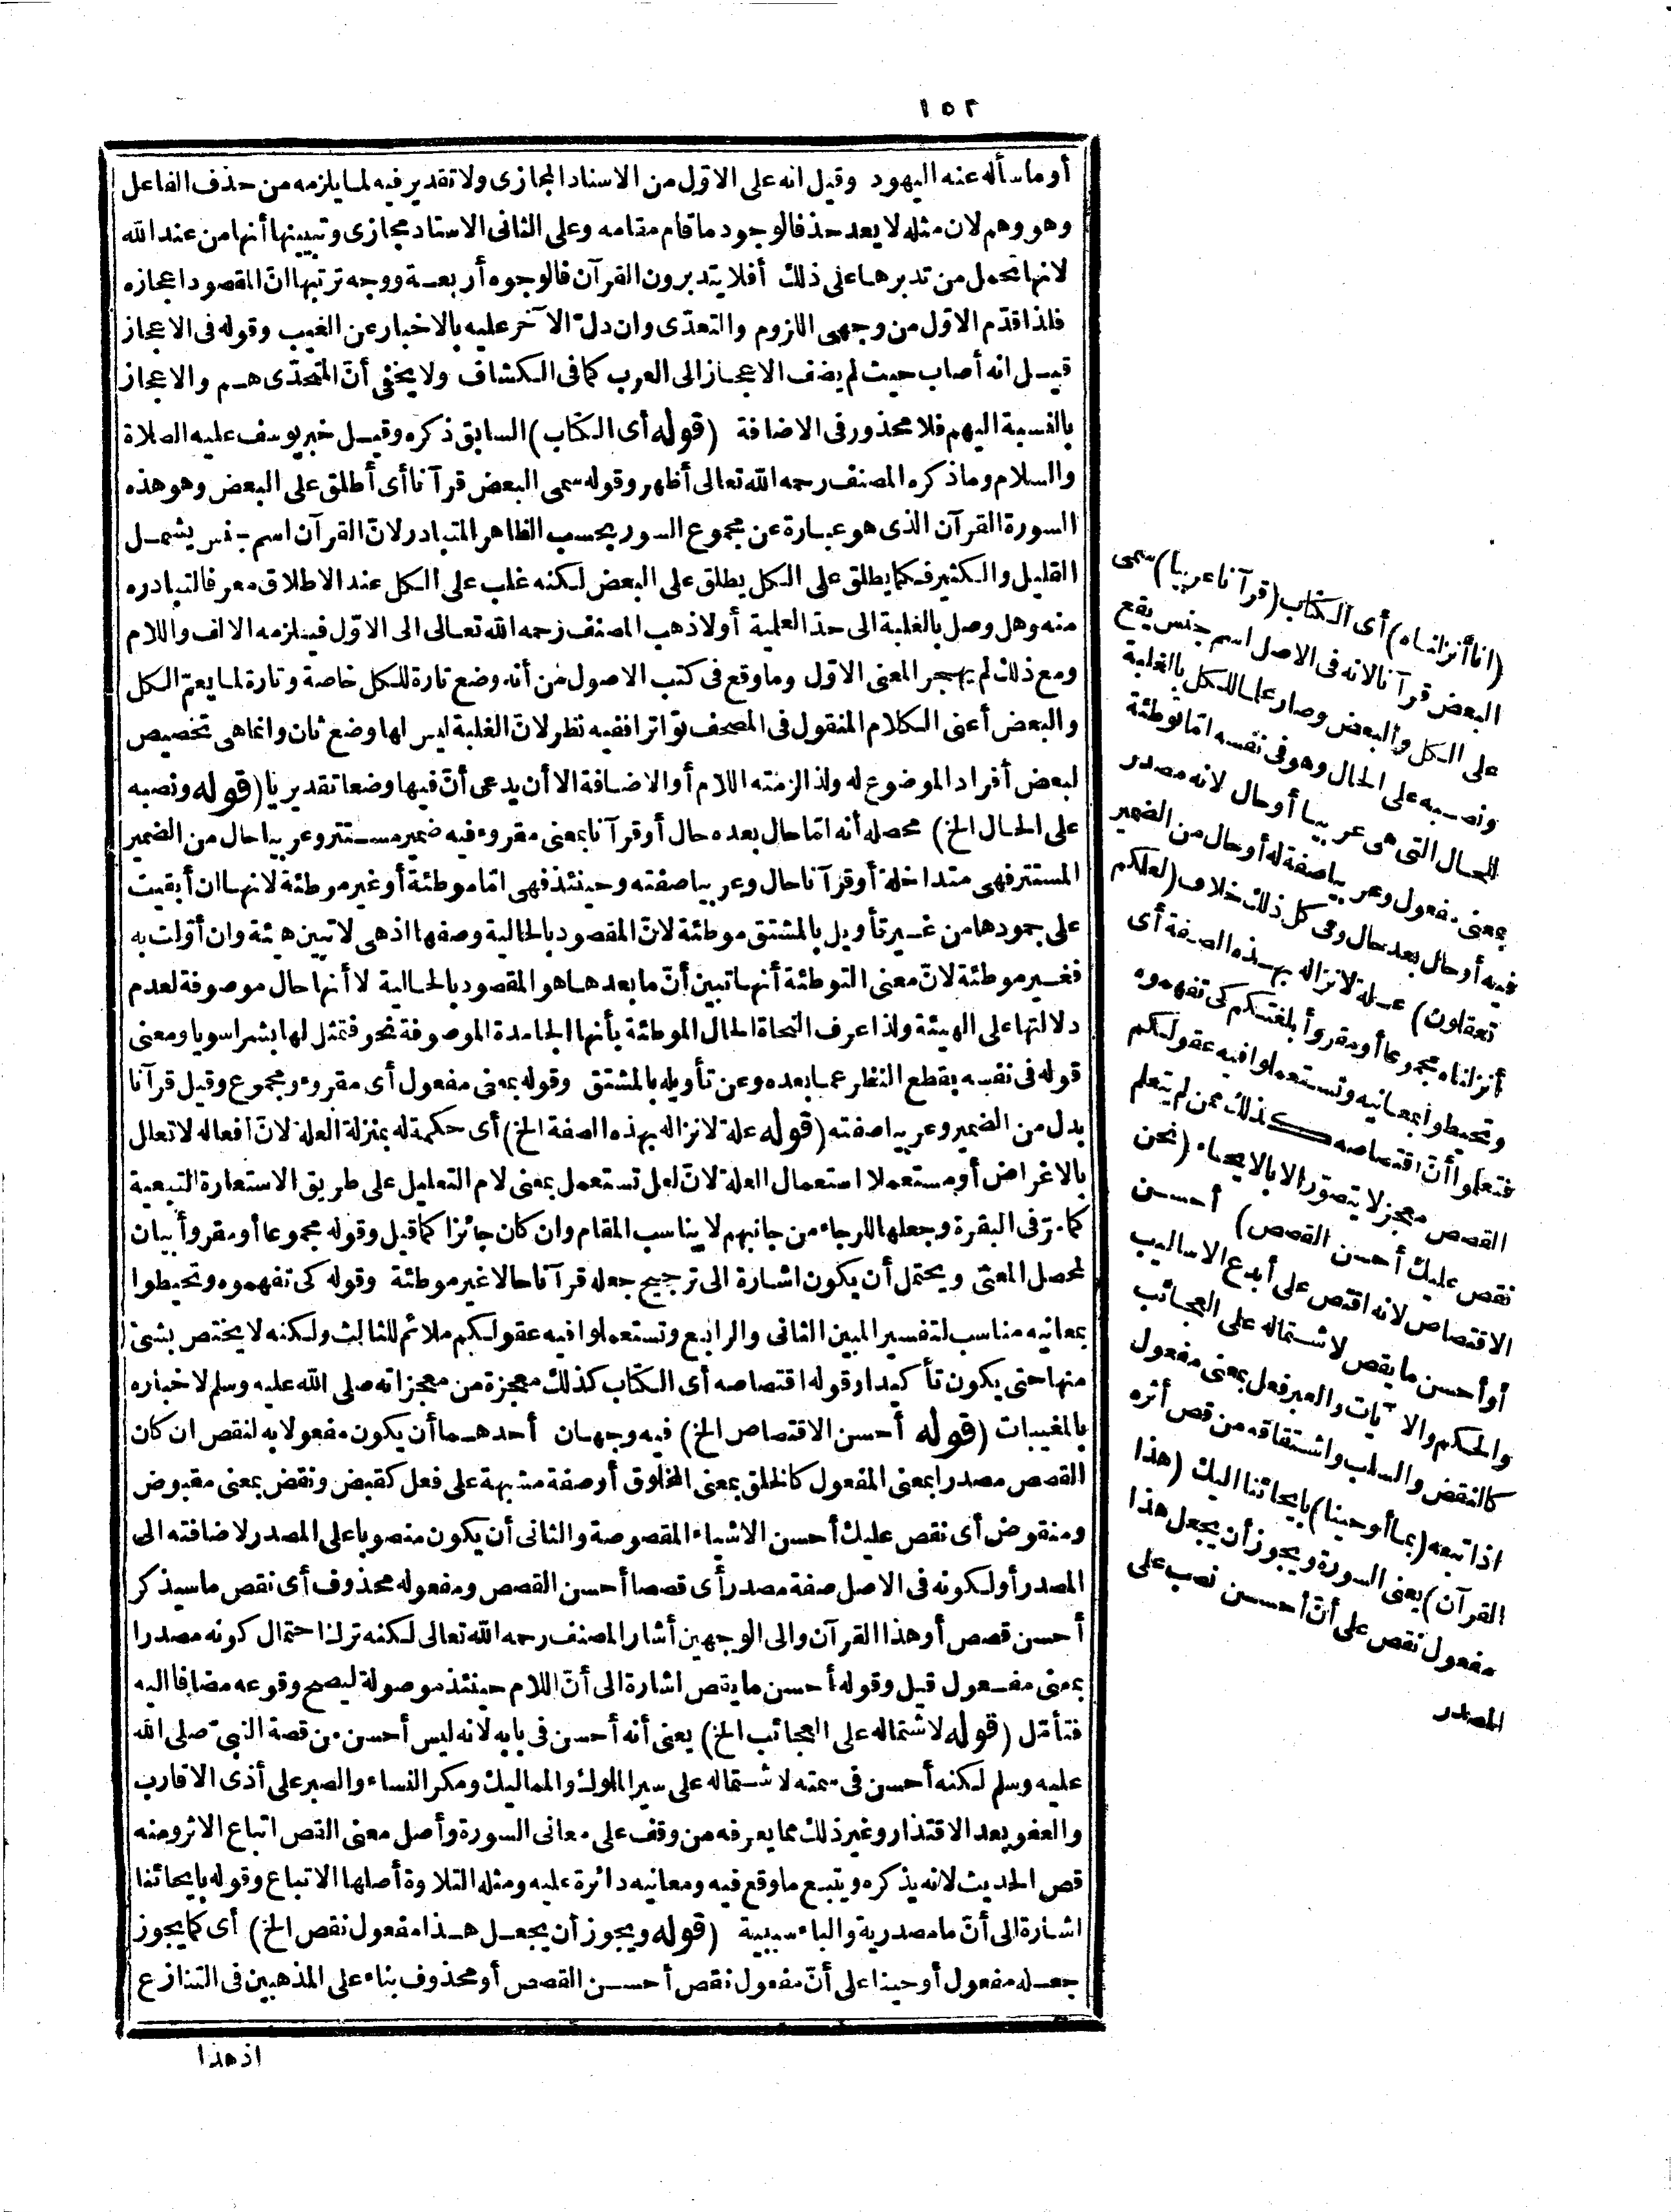 ١٥٢
أو ما سأله عنه اليهود وقيل انه على الاوّل من الاسناد المجازى ولا تقدير فيه لما يلزمه من حذف الفاعل
وهو وهم لان مثله لا يعد حذفا لوجود ما قام مقامه وعلى الثانى الاسناد مجازى وتبيينها أنها من عند الله
لانها تحمل من تدبرها على ذلك أفلا يتدبرون القرآن فالوجوه أربعة ووجه ترتبها انّ المقصود اعجازه
فلذا قدّم الاوّل من وجهى اللزوم والتعدّى وان دلّ الآخر عليه بالاخبار عن الغيب وقوله فى الاعجاز
قيل انه أصاب حيث لم يضف الاعجاز الى العرب كما فى الكشاف ولا يخفى أنّ المتحدّى هم والاعجاز
بالنسبة اليهم فلا محذور فى الاضافة (قوله أى الكتاب) السابق ذكره وقيل خبر يوسف عليه الصلاة
والسلام وما ذكره المصنف رحمه الله تعالى أظهر وقوله سمى البعض قرآنا أى أطلق على البعض وهو هذه
السورة القرآن الذى هو عبارة عن مجموع السور بحسب الظاهر المتبادر لانّ القرآن اسم جنس يشمل
القليل والكثير فكما يطلق على الكل يطلق على البعض لكنه غلب على الكل عند الاطلاق معرفا لتبادره
منه وهل وصل بالغلبة الى حدّ العلمية أولا ذهب المصنف رحمه الله تعالى الى الاوّل فيلزمه الالف واللام
ومع ذلك لم يهجر المعنى الاوّل وما وقع فى كتب الاصول من أنه وضع تارة للكل خاصة وتارة لما يعمّ الكل
والبعض أعنى الكلام المنقول فى المصحف تواترا ففيه نظر لانّ الغلبة ليس لها وضع ثان وانما هى تخصيص
لبعض أفراد الموضوع له ولذا لزمته اللام أو الاضافة الا أن يدعى أنّ فيها وضعا تقديريا (قوله ونصبه
على الحال الخ) محصله أنه امّا حال بعده حال أو قرآنا بمعنى مقروء فيه ضمير مستتر وعربيا حال من الضمير
المستتر فهى متداخلة أو قرآنا حال وعربيا صفته وحينئذ فهى امّا موطئة أو غير موطئة لانها ان أبقيت
على جمودها من غير تأويل بالمشتق موطئة لانّ المقصود بالحالية وصفها اذ هى لا تبين هيئة وان أوّلت به
فغير موطئة لانّ معنى التوطئة أنها تبين أنّ ما بعدها هو المقصود بالحالية لا أنها حال موصوفة لعدم
دلالتها على الهيئة ولذا عرف النحاة الحال الموطئة بأنها الجامدة الموصوفة نحو فتمثل لها بشرا سويا ومعنى
قوله فى نفسه بقطع النظر عما بعده وعن تأويله بالمشتق وقوله بمعنى مفعول أى مقروء ومجموع وقيل قرآنا
بدل من الضمير وعربيا صفته (قوله علة لانزاله بهذه الصفة الخ) أى حكمة له بمنزلة العلة لانّ أفعاله لا تعلل
بالاغراض أو مستعملا استعمال العلة لانّ لعل تستعمل بمعنى لام التعليل على طريق الاستعارة التبعية
كما مرّ فى البقرة وجعلها للرجاء من جانبهم لا يناسب المقام وان كان جائزا كما قيل وقوله مجموعا أو مقروأ بيان
لمحصل المعنى ويحتمل أن يكون اشارة الى ترجيح جعله قرآنا حالا غير موطئة وقوله كى تفهموه وتحيطوا
بمعانيه مناسب لتفسير المبين الثانى والرابع وتستعملوا فيه عقولكم ملائم للثالث ولكنه لا يختص بشئ
منها حتى يكون تأكيدا وقوله اقتصاصه أى الكتاب كذلك معجزة من معجزاته صلى الله عليه وسلم لاخباره
بالمغيبات (قوله أحسن الاقتصاص الخ) فيه وجهان أحدهما أن يكون مفعولا به لنقص ان كان
القصص مصدرا بمعنى المفعول كالخلق بمعنى المخلوق أو صفة مشبهة على فعل كقبض ونقض بمعنى مقبوض
ومنقوض أى نقص عليك أحسن الاشياء المقصوصة والثانى أن يكون منصوبا على المصدر لاضافته الى
المصدر أو لكونه فى الاصل صفة مصدر أى قصصا أحسن القصص ومفعوله محذوف أى نقص ما سيذكر
أحسن قصص أو هذا القرآن والى الوجهين أشار المصنف رحمه الله تعالى لكنه ترك احتمال كونه مصدرا
بمعنى مفعول قيل وقوله أحسن ما يقص اشارة الى أنّ اللام حينئذ موصولة ليصح وقوعه مضافا اليه
فتأمّل (قوله لاشتماله على العجائب الخ) يعنى أنه أحسن فى بابه لانه ليس أحسن من قصة النبىّ صلى الله
عليه وسلم لكنه أحسن فى سمته لاشتماله على سير الملوك والمماليك ومكر النساء والصبر على أذى الاقارب
والعفو بعد الاقتدار وغير ذلك مما يعرفه من وقف على معانى السورة وأصل معنى القص اتباع الاثر ومنه
قص الحديث لانه يذكره ويتبع ما وقع فيه ومعانيه دائرة عليه ومثله التلاوة أصلها الاتباع وقوله بايحائنا
اشارة الى أنّ ما مصدرية والباء سببية (قوله ويجوز أن يجعل هذا مفعول نقص الخ) أى كما يجوز
جعله مفعول أوحينا على أنّ مفعول نقص أحسن القصص أو محذوف بناء على المذهبين فى التنازع
اذ هذا
(انا أنزلناه) أى الكتاب (قرآنا عربيا) سمى
البعض قرآنا لانه فى الاصل اسم جنس يقع
على الكل والبعض وصار علما للكل بالغلبة
ونصبه على الحال وهو فى نفسه امّا توطئة
للحال التى هى عربيا أو حال لانه مصدر
بمعنى مفعول وعربيا صفة له أو حال من الضمير
فيه أو حال بعد حال وفى كل ذلك خلاف (لعلكم
تعقلون) علة لانزاله بهذه الصفة أى
أنزلناه مجموعا أو مقروأ بلغتكم كى تفهموه
وتحيطوا بمعانيه وتستعملوا فيه عقولكم
فتعلموا أنّ اقتصاصه كذلك ممن لم يتعلم
القصص معجز لا يتصوّر الا بالايحاء (نحن
نقص عليك أحسن القصص) أحسن
الاقتصاص لانه اقتص على أبدع الاساليب
أو أحسن ما يقص لاشتماله على العجائب
والحكم والآيات والعبر فعل بمعنى مفعول
كالنقض والسلب واشتقاقه من قص أثره
اذا تبعه (بما أوحينا) بايحائنا اليك (هذا
القرآن) يعنى السورة ويجوز أن يجعل هذا
مفعول نقص على أنّ أحسن نصب على
المصدر